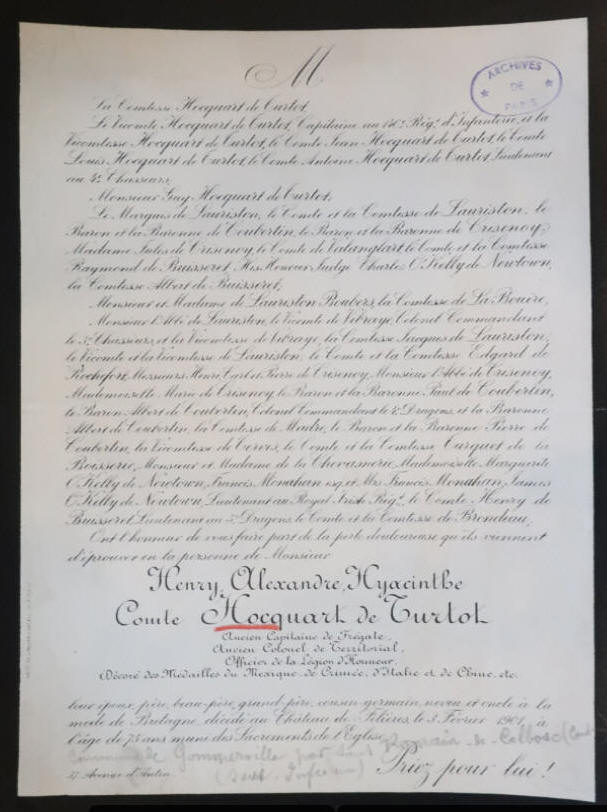 M
ARCHIVES
DE
PARIS
La Comtesse Hocquart de Turtot,
Le Vicomte Hocquart de Turtot, Capitaine au 146e Régt d'Infanterie, et la
Vicomtesse Hocquart de Turtot, le Comte Jean Hocquart de Turtot, le Comte
Louis Hocquart de Turtot, le Comte Antoine Hocquart de Turtot, Lieutenant
au 4e Chasseurs,
Monsieur Guy Hocquart de Turtot,
Le Marquis de Lauriston, le Comte et la Comtesse de Lauriston, le
Baron et la Baronne de Coubertin, le Baron et la Baronne de Crisenoy,
Madame Jules de Crisenoy, le Comte de Valanglart, le Comte et la Comtesse
Raymond de Buisseret, His Honour Judge Charles O'Kelly de Newtown,
la Comtesse Albert de Buisseret,
Monsieur et Madame de Lauriston Boubers, la Comtesse de La Bouère,
Monsieur l'Abbé de Lauriston, le Vicomte de Vibraye, Colonel Commandant
le 3e Chasseurs, et la Vicomtesse de Vibraye, la Comtesse Jacques de Lauriston,
le Vicomte et la Vicomtesse de Lauriston, le Comte et la Comtesse Edgard de
Rochefort, Messieurs Henri, Carl et Pierre de Crisenoy, Monsieur l'Abbé de Crisenoy,
Mademoiselle Marie de Crisenoy, le Baron et la Baronne Paul de Coubertin,
le Baron Albert de Coubertin, Colonel Commandant le 4e Dragons, et la Baronne
Albert de Coubertin, la Comtesse de Madre, le Baron et la Baronne Pierre de
Coubertin, la Vicomtesse de Cerves, le Comte et la Comtesse Carquet de la
Boisserie, Monsieur et Madame de la Chevasnerie, Mademoiselle Marguerite
O'Kelly de Newtown, Francis Monahan esq. et Mrs Francis Monahan, James
O'Kelly de Newtown, Lieutenant au Royal Irish Régt, le Comte Henry de
Buisseret, Lieutenant au 5e Dragons, le Comte et la Comtesse de Brondeau,
Ont l'honneur de vous faire part de la perte douloureuse qu'ils viennent
d'éprouver en la personne de Monsieur
Henry, Alexandre, Hyacinthe
Comte Hocquart de Turtot
Ancien Capitaine de Frégate,
Ancien Colonel de Territorial,
Officier de la Légion d'Honneur,
Décoré des Médailles du Mexique, de Crimée, d'Italie et de Chine, etc.
leur époux, père, beau-père, grand-père, cousin-germain, neveu et oncle à la
mode de Bretagne, décédé au Château de Pelières le 3 Février 1901, à
l'âge de 75 ans muni des Sacrements de l'Eglise.
Commune de Gommerville par Saint Romain-de-Colbosc
(Seine Inférieure)
Priez pour lui !
27 Avenue d'Antin